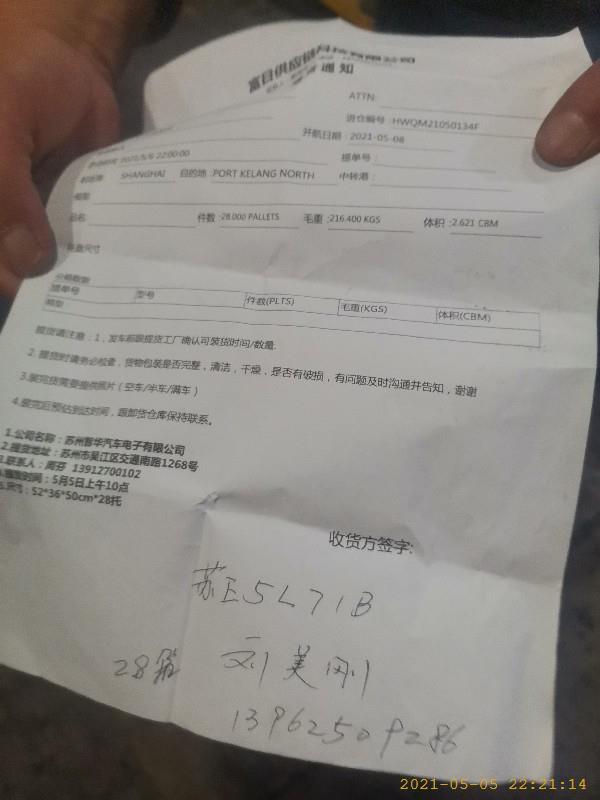 富日供应链科技有限公司
通知
ATTN:
进仓编号 :HWQM21050134F
开航日期 : 2021-05-08
22:00:00
提单号 :
SHANGHAI 目的地 :PORT KELANG NORTH 中转港 :
箱型
品名: 件数 :28.000 PALLETS 毛重 :216.400 KGS 体积 : 2.621 CBM
尺寸
分箱数据
提单号 型号 件数(PLTS) 毛重(KGS) 体积(CBM)
箱型
提货请注意 : 1 , 发车前跟提货工厂确认可装货时间/数量.
2. 提货时请务必检查 , 货物包装是否完整 , 清洁 , 干燥 , 是否有破损 , 有问题及时沟通并告知 , 谢谢
3.装完货需要提供照片 ( 空车/半车/满车 )
4.装完后预估到达时间 , 跟卸货仓库保持联系。
1.公司名称 : 苏州智华汽车电子有限公司
2.提货地址 : 苏州市吴江区交通南路1268号
联系人 : 周芬 13912700102
时间 : 5月5日上午10点
尺寸 : 52*36*50cm*28托
收货方签字:
苏E5L71B
28箱 刘美刚
13962509286
2021-05-05 22:21:14